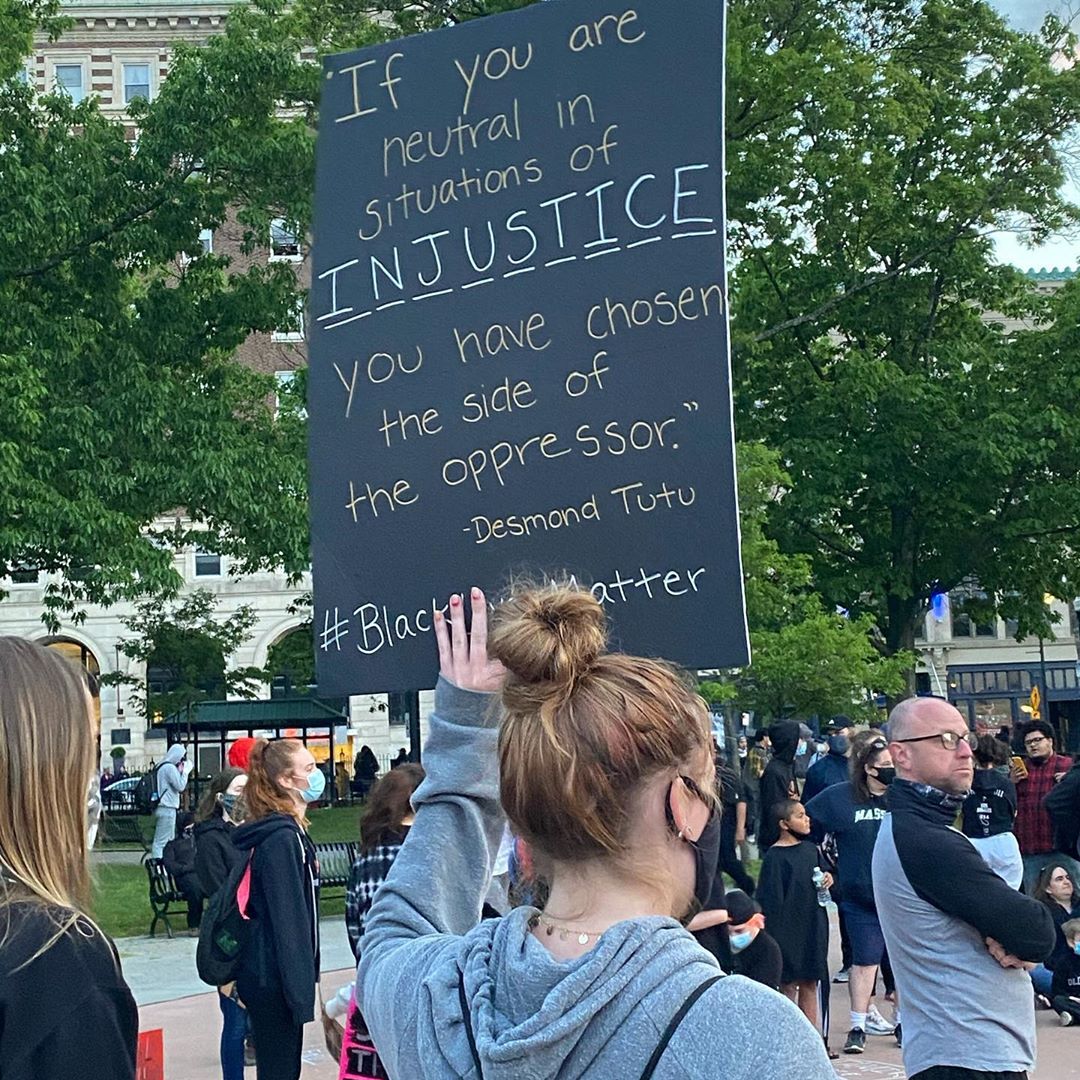 "If you are
neutral in
situations of
INJUSTICE
you have chosen
the side of
the oppressor."
-Desmond Tutu
#Black atter
MASS